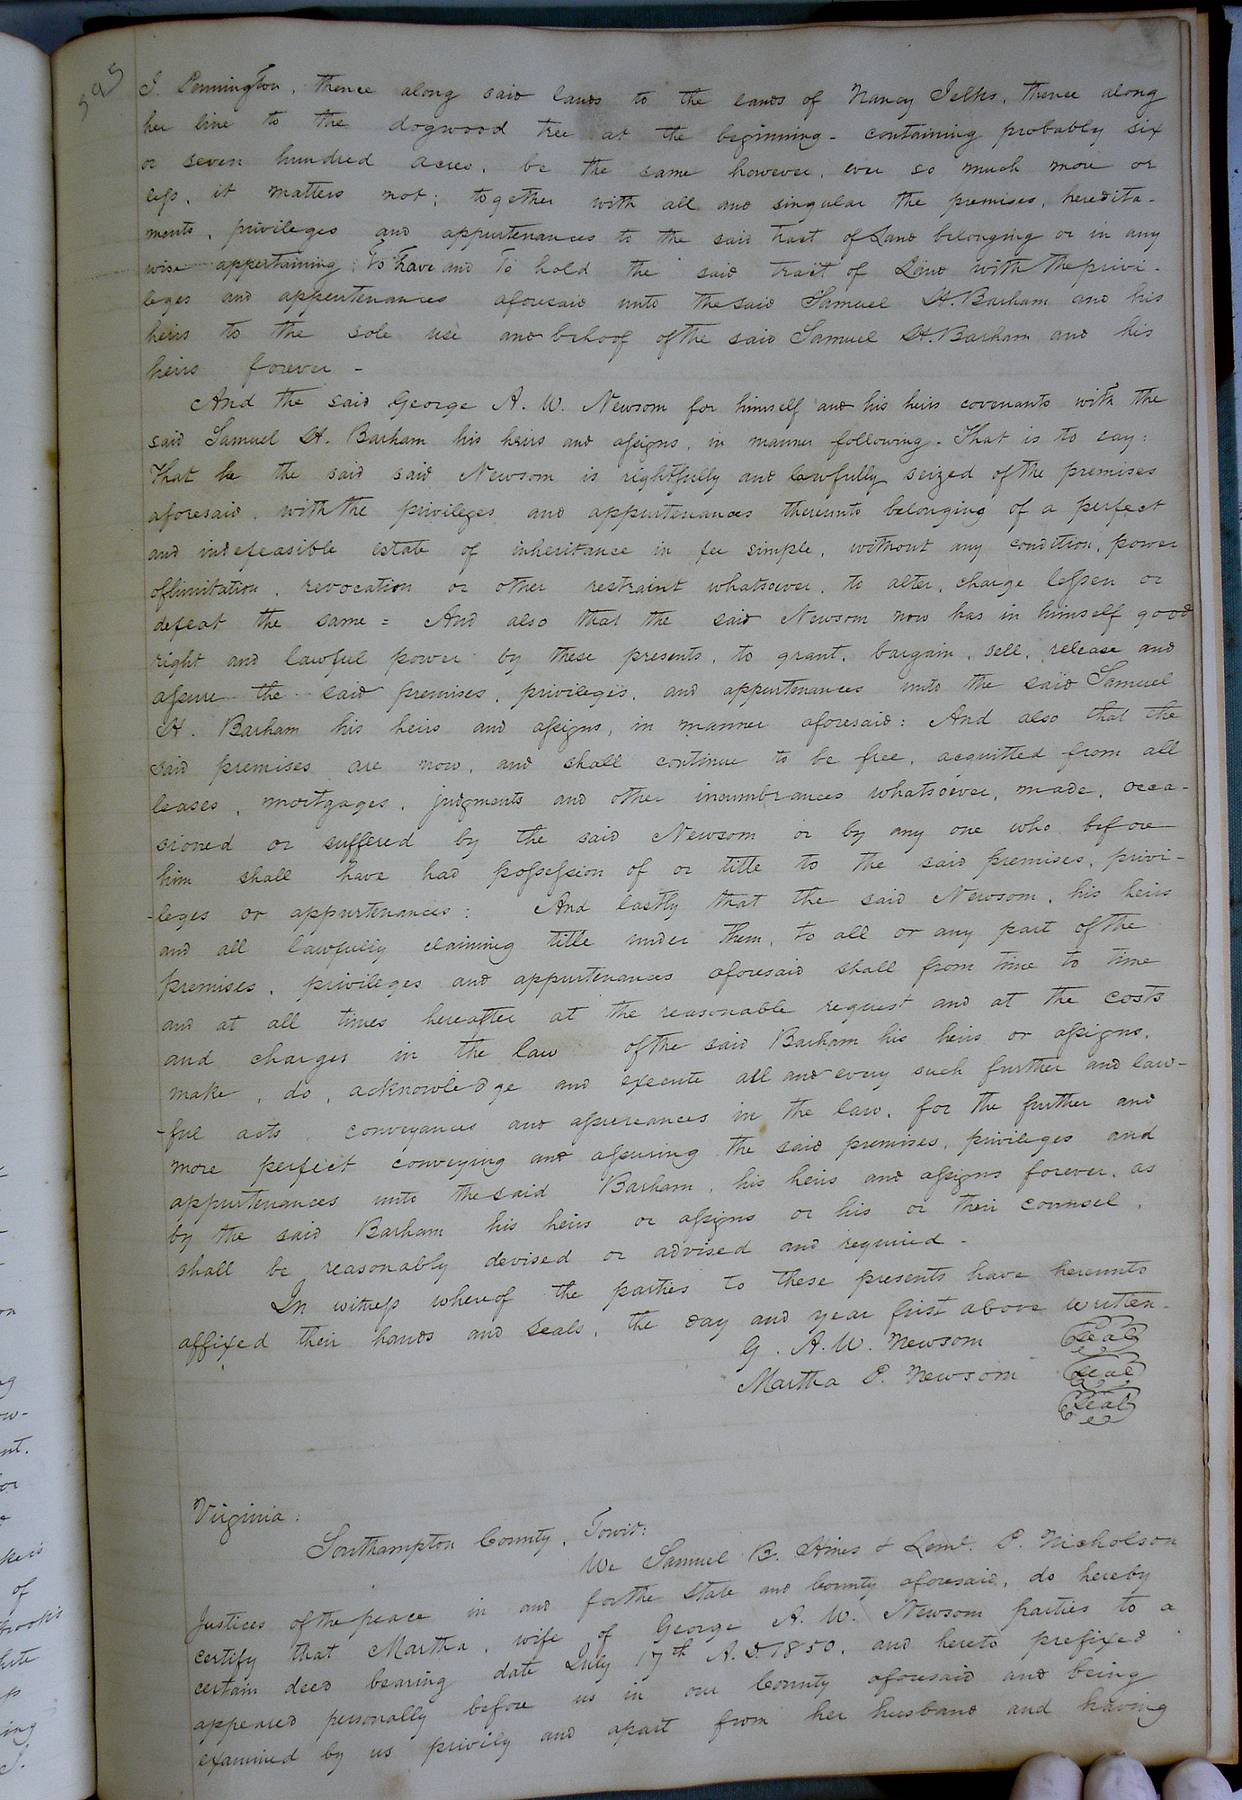 595
J. Pennington, thence along said lands to the lands of Nancy Jelks, thence along
her line to the dogwood tree at the beginning - containing probably six
or seven hundred acres, be the same however, ever so much more or
less, it matters not; together with all and singular the premises, heredita-
ments, privileges and appurtenances to the said tract of Land belonging or in any
wise appertaining: To have and To hold the said tract of Land with the privi-
leges and appurtenances aforesaid unto the said Samuel H. Barham and his
heirs to the sole use and behoof of the said Samuel H. Barham and his
heirs forever -
And the said George A. W. Newsom for himself and his heirs covenants with the
said Samuel H. Barham his heirs and assigns, in manner following. That is to say:
That he the said said Newsom is rightfully and lawfully seized of the premises
aforesaid, with the privileges and appurtenances thereunto belonging of a perfect
and indefeasible estate of inheritance in fee simple, without any condition, power
of limitation, revocation or other restraint whatsoever, to alter, charge lessen or
defeat the same = And also that the said Newsom now has in himself good
right and lawful power by these presents, to grant, bargain, sell, release and
assure the said premises, privileges, and appurtenances unto the said Samuel
H. Barham his heirs and assigns, in manner aforesaid: And also that the
said premises are now, and shall continue to be free, acquitted from all
leases, mortgages, judgments and other incumbrances whatsoever, made, occa-
sioned or suffered by the said Newsom or by any one who before
him shall have had possession of or title to the said premises, privi-
-leges or appurtenances: And lastly that the said Newsom, his heirs
and all lawfully claiming title under them, to all or any part of the
premises, privileges and appurtenances aforesaid shall from time to time
and at all times hereafter at the reasonable request and at the costs
and charges in the law of the said Barham his heirs or assigns,
make, do, acknowledge and execute all and every such further and law-
-ful acts, conveyances and assureances in the law, for the further and
more perfect conveying and assuring the said premises, privileges and
appurtenances unto the said Barham, his heirs and assigns forever, as
by the said Barham his heirs or assigns or his or their counsel,
shall be reasonably devised or advised and required -
In witness whereof the parties to these presents have hereunto
affixed their hands and seals, the day and year first above written.
G. A. W. Newsom Seal
Martha P. Newsom Seal
Seal
Virginia:
Southampton County, Towit:
We Samuel B. Hines & Leml. P. Nicholson
Justices of the peace in and for the State and County aforesaid, do hereby
certify that Martha, wife of George A. W. Newsom parties to a
certain deed bearing date July 17th A.D. 1850, and hereto prefixed
appeared personally before us in our County aforesaid and being
examined by us privily and apart from her husband and having